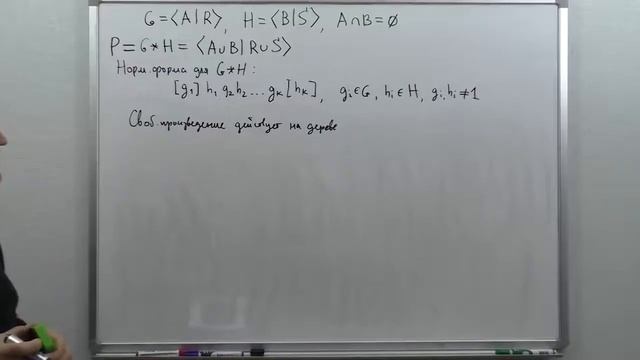 G = ⟨A|R⟩, H = ⟨B|S⟩, A∩B = ∅
P = G * H = ⟨A∪B | R∪S⟩
Норм. форма для G*H :
[g₁] h₁ g₂ h₂ ... gₖ [hₖ], gᵢ∈G, hᵢ∈H, gᵢ, hᵢ ≠ 1
Своб. произведение действует на дереве